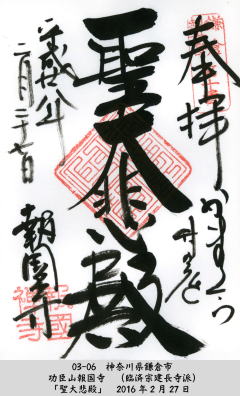 奉拝
聖大悲殿
平成廿八年
二月二十七日
報国寺
03-06 神奈川県鎌倉市
功臣山報国寺 (臨済宗建長寺派)
「聖大悲殿」 2016年2月27日